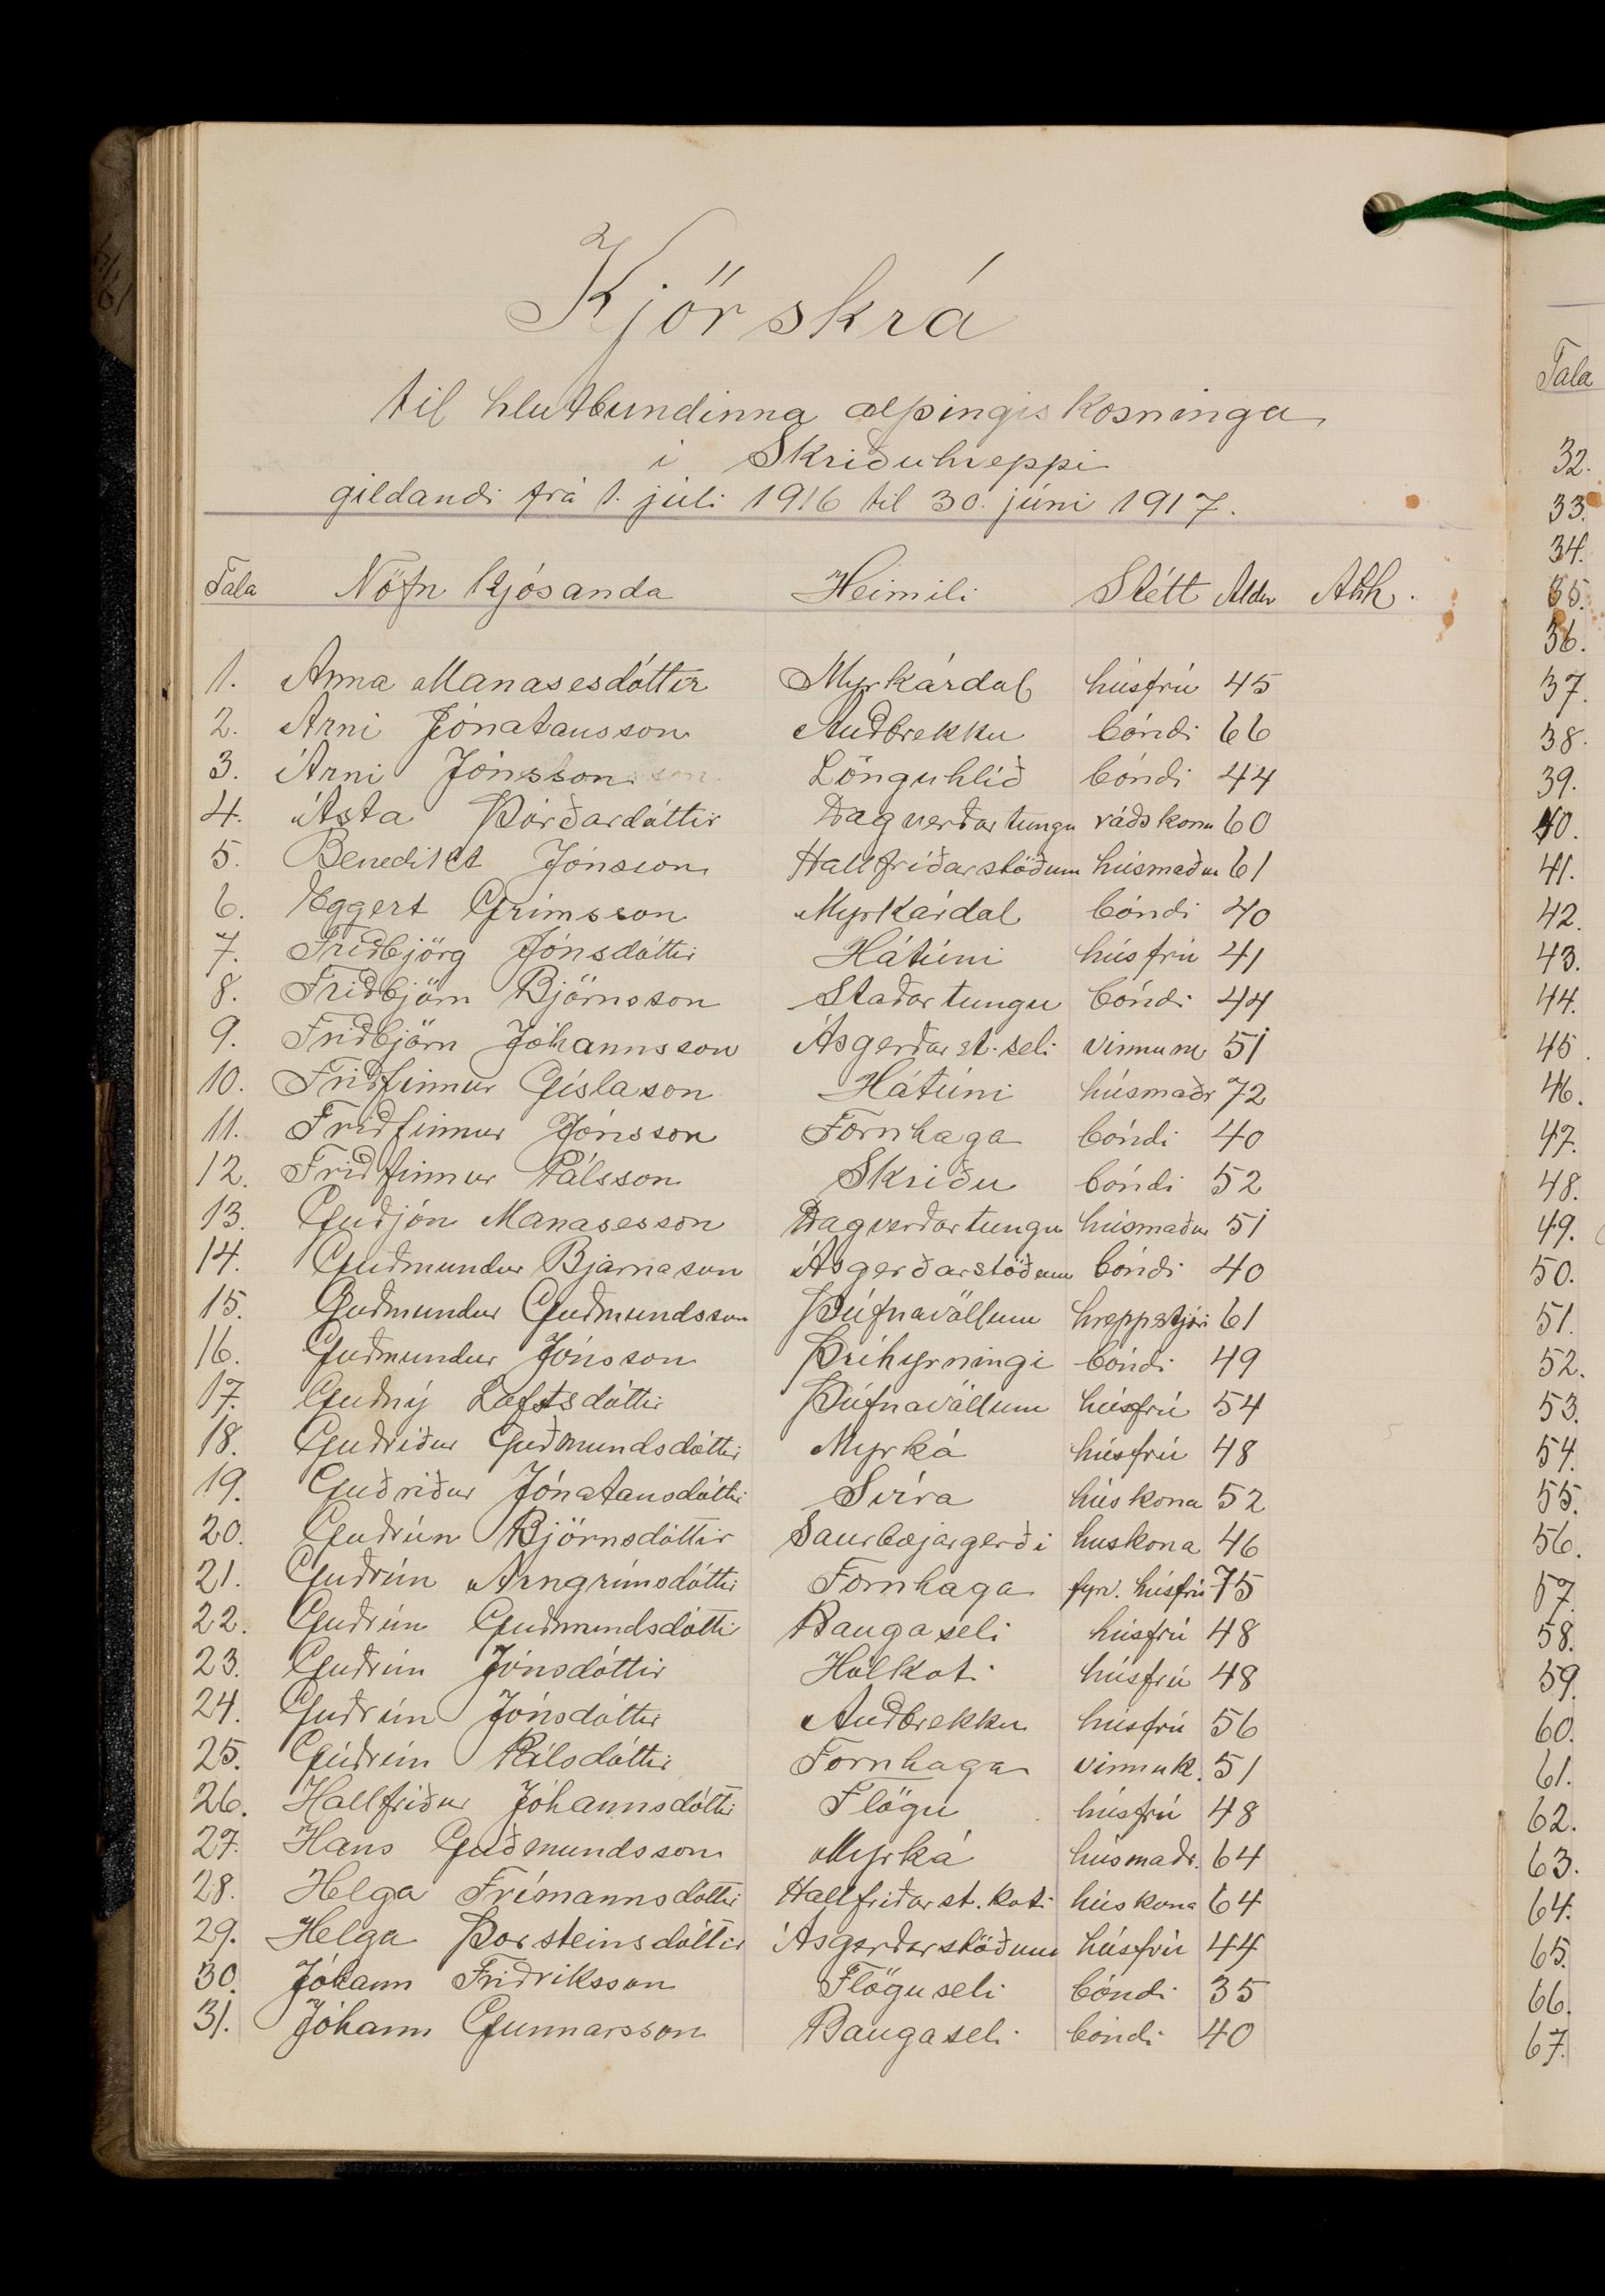 Kjörskrá
til hlutbundinna alþingiskosninga
í Skriðuhreppi
gildandi frá 1. júlí 1916 til 30. júní 1917.
Tala Nöfn kjósanda Heimili Stétt Aldur Ath.
1. Anna Manasesdóttir Myrkárdal húsfrú 45
2. Árni Jónatansson Auðbrekku bóndi 66
3. Árni Jónsson Lönguhlíð bóndi 44
4. Ásta Þórðardóttir Dagverðartungu ráðskona 60
5. Benedikt Jónsson Hallfríðarstöðum húsmaður 61
6. Eggert Grímsson Myrkárdal bóndi 40
7. Friðbjörg Jónsdóttir Hátúni húsfrú 41
8. Friðbjörn Björnsson Staðartungu bóndi 44
9. Friðbjörn Jóhannsson Ásgerðarst.seli vinnum 51
10. Friðfinnur Gíslason Hátúni húsmaðr 72
11. Friðfinnur Jónsson Fornhaga bóndi 40
12. Friðfinnur Pálsson Skriðu bóndi 52
13. Guðjón Manasesson Dagverðartungu húsmaður 51
14. Guðmundur Bjarnason Ásgerðarstöðum bóndi 40
15. Guðmundur Guðmundsson Þúfnavöllum hreppstjóri 61
16. Guðmundur Jónsson Þríhyrningi bóndi 49
17. Guðný Loftsdóttir Þúfnavöllum húsfrú 54
18. Guðríður Guðmundsdóttir Myrká húsfrú 48
19. Guðríður Jónatansdóttir Svíra húskona 52
20. Guðrún Björnsdóttir Saurbæjargerði huskona 46
21. Guðrún Arngrímsdóttir Fornhaga fyrv. húsfrú 75
22. Guðrún Guðmundsdóttir Baugaseli húsfrú 48
23. Guðrún Jónsdóttir Hólkoti húsfrú 48
24. Guðrún Jónsdóttir Auðbrekku húsfrú 56
25. Guðrún Pálsdóttir Fornhaga vinnuk. 51
26. Hallfríður Jóhannsdóttir Flögu húsfrú 48
27. Hans Guðmundsson Myrká húsmaðr. 64
28. Helga Frímannsdóttir Hallfríðarst.koti húskona 64
29. Helga Þorsteinsdóttir Ásgerðarstöðum húsfrú 44
30. Jóhann Friðriksson Flöguseli bóndi 35
31. Jóhann Gunnarsson Baugaseli bóndi 40
Tala
32.
33.
34.
35.
36.
37.
38.
39.
40.
41.
42.
43.
44.
45.
46.
47.
48.
49.
50.
51.
52.
53.
54.
55.
56.
57.
58.
59.
60.
61.
62.
63.
64.
65.
66.
67.